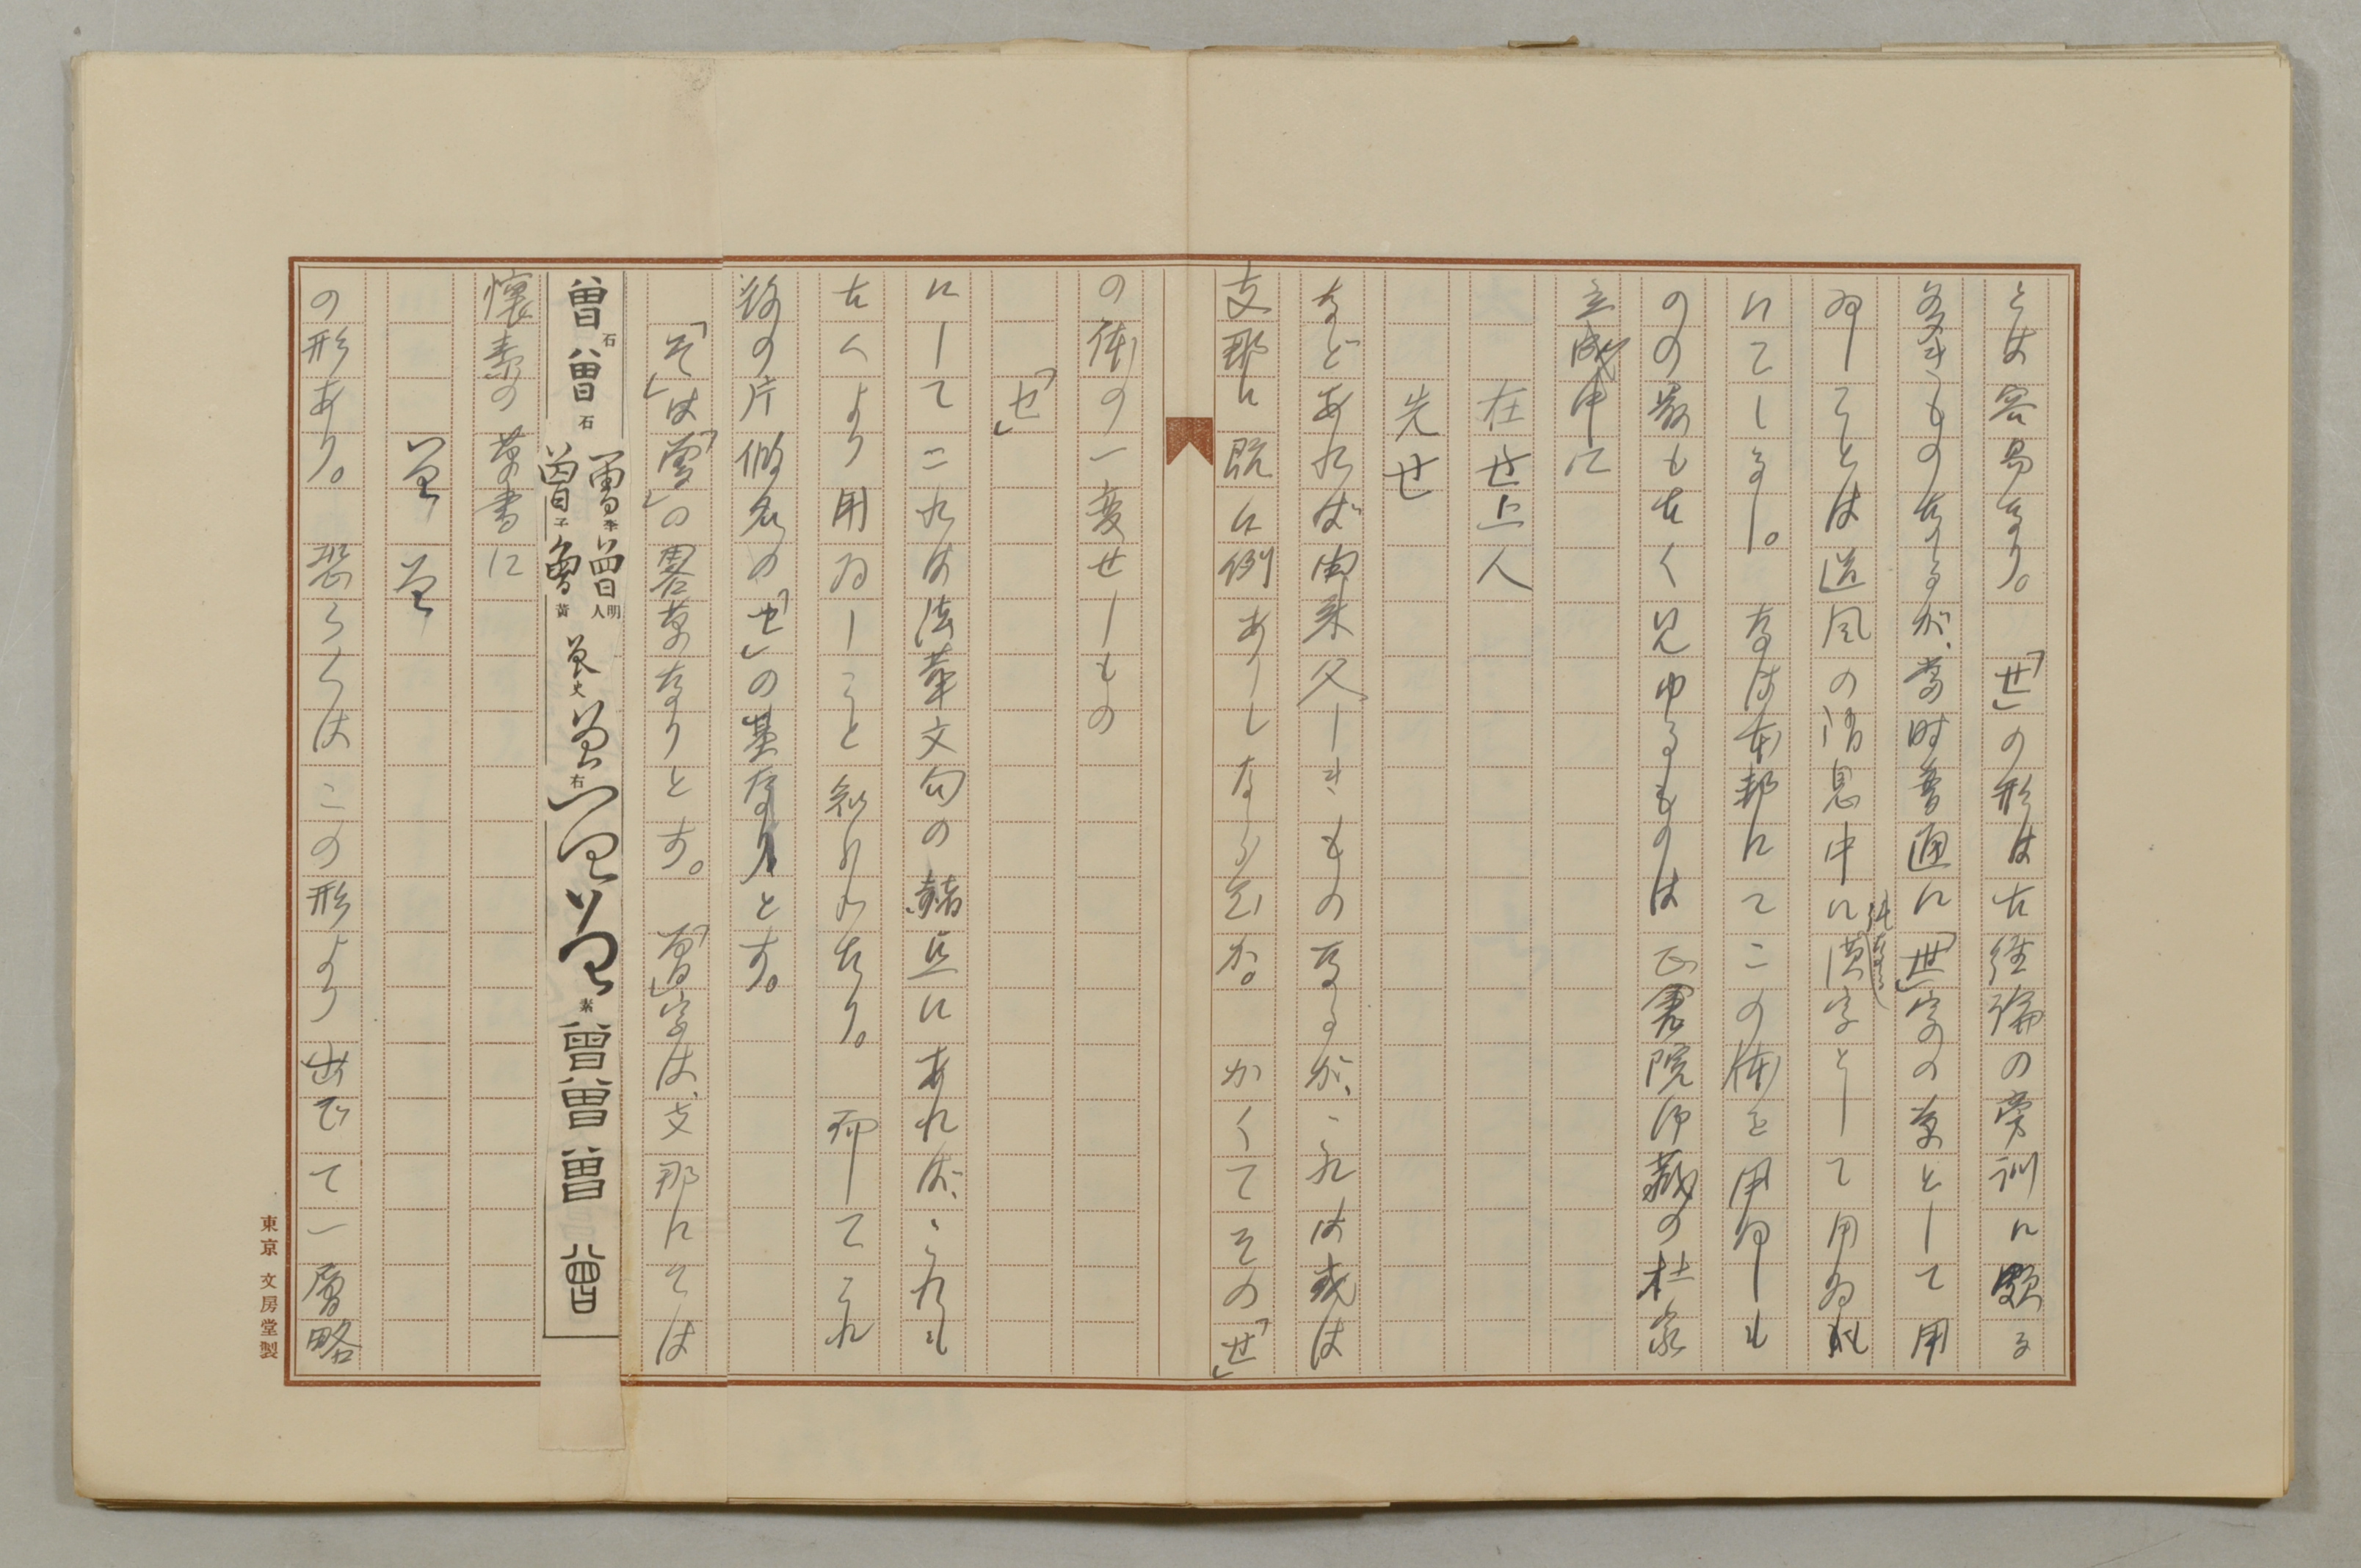 とは容易なり。「せ」の形は古経論の旁訓に頗る
多きものなるが、当時普通に「世」字の草として用
ゐしことは道風の消息中に漢字として用ゐ
にてしるし。なほ本邦にてこの体を用ゐしも
のの数も古く見ゆるものは正倉院御蔵の杜家
立成中に
在世上人
先世
などあれば由来久しきものなるが、これは或は
支那に既に例ありしならむか。かくてその「せ」
の体の一変せしもの
「セ」
にしてこれは法華文句の赭点にあれば、これも
古くより用ゐしこと知られたり。而してこれ
の片仮名の「セ」の基なりとす。
「そ」は「曽」の略草なりとす。「曽」字は、支那にては
曾石曾石
李明人
子黄
史右
素
曾曾曾曾
懐素の草書に
の形あり。恐らくはこの形より出でて一層略
東京 文房堂製